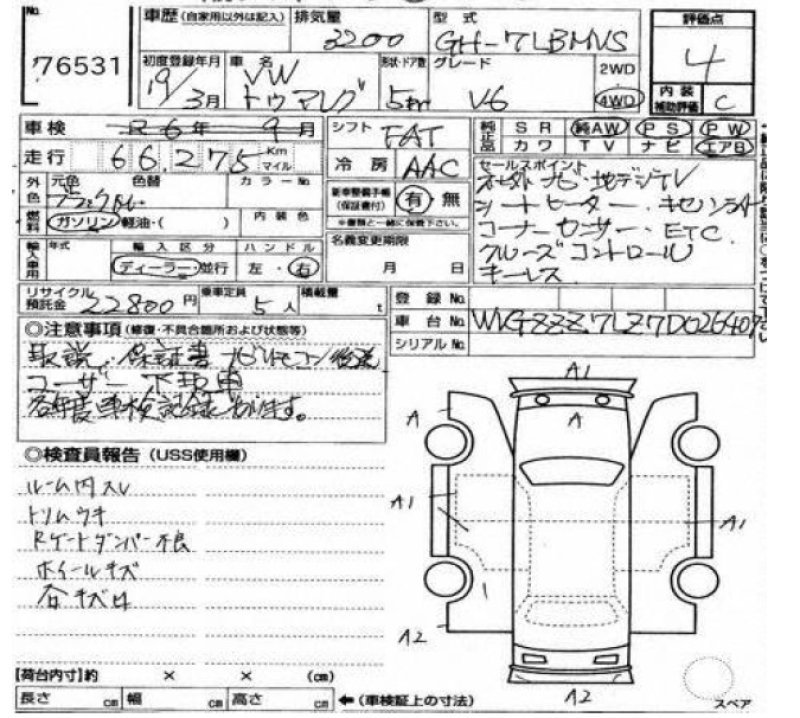 No. 76531
車歴(自家用以外は記入) 排気量 3200 型式 GH-7LBMVS
評価点 4
初度登録年月 19/3月 車名 VW トゥアレグ 形状・ドア数 5 グレード V6 2WD 4WD
内装補助評価 C
車検 R6年 9月 シフト FAT 純正 SR 純AW PS PW
カワ TV ナビ エアB
走行 66,275 Km マイル 冷房 AAC
外色 元色 色替 カラーNo.
新車整備手帳(保証書付) 有 無
※書類と一緒に保管下さい。
燃料 ガソリン 軽油・( ) 内装色
セールスポイント
ナビ・地デジTV
シートヒーター・
コーナーセンサー・ETC.
クルーズコントロール
キーレス
輸入車用 年式 輸入区分 ディーラー・並行 ハンドル 左・右
名義変更期限 月 日
リサイクル預託金 22800円 乗車定員 5人 積載量 t
登録No.
車台No. WVGZZZ7LZ7D026409
シリアルNo.
◎注意事項(修復・不具合箇所および状態等)
取説・保証書 ナビリモコン後送
ユーザー下取車
各年度車検記録あります。
◎検査員報告(USS使用欄)
ルーム内スレ
トリムウキ
Rゲートダンパー不良
ホイールキズ
各キズ凹
A1
A A
A1 A1
A2
A2
スペア
【荷台内寸】約 × × (cm)
長さ cm 幅 cm 高さ cm ←(車検証上の寸法)